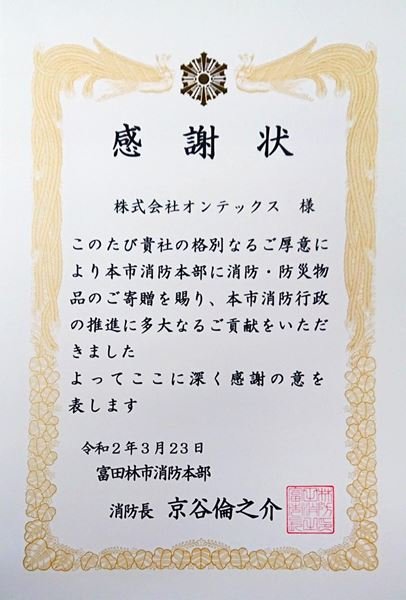 感謝状
株式会社オンテックス 様
このたび貴社の格別なるご厚意に
より本市消防本部に消防・防災物
品のご寄贈を賜り、本市消防行政
の推進に多大なるご貢献をいただ
きました
よってここに深く感謝の意を
表します
令和２年３月２３日
富田林市消防本部
消防長 京谷倫之介